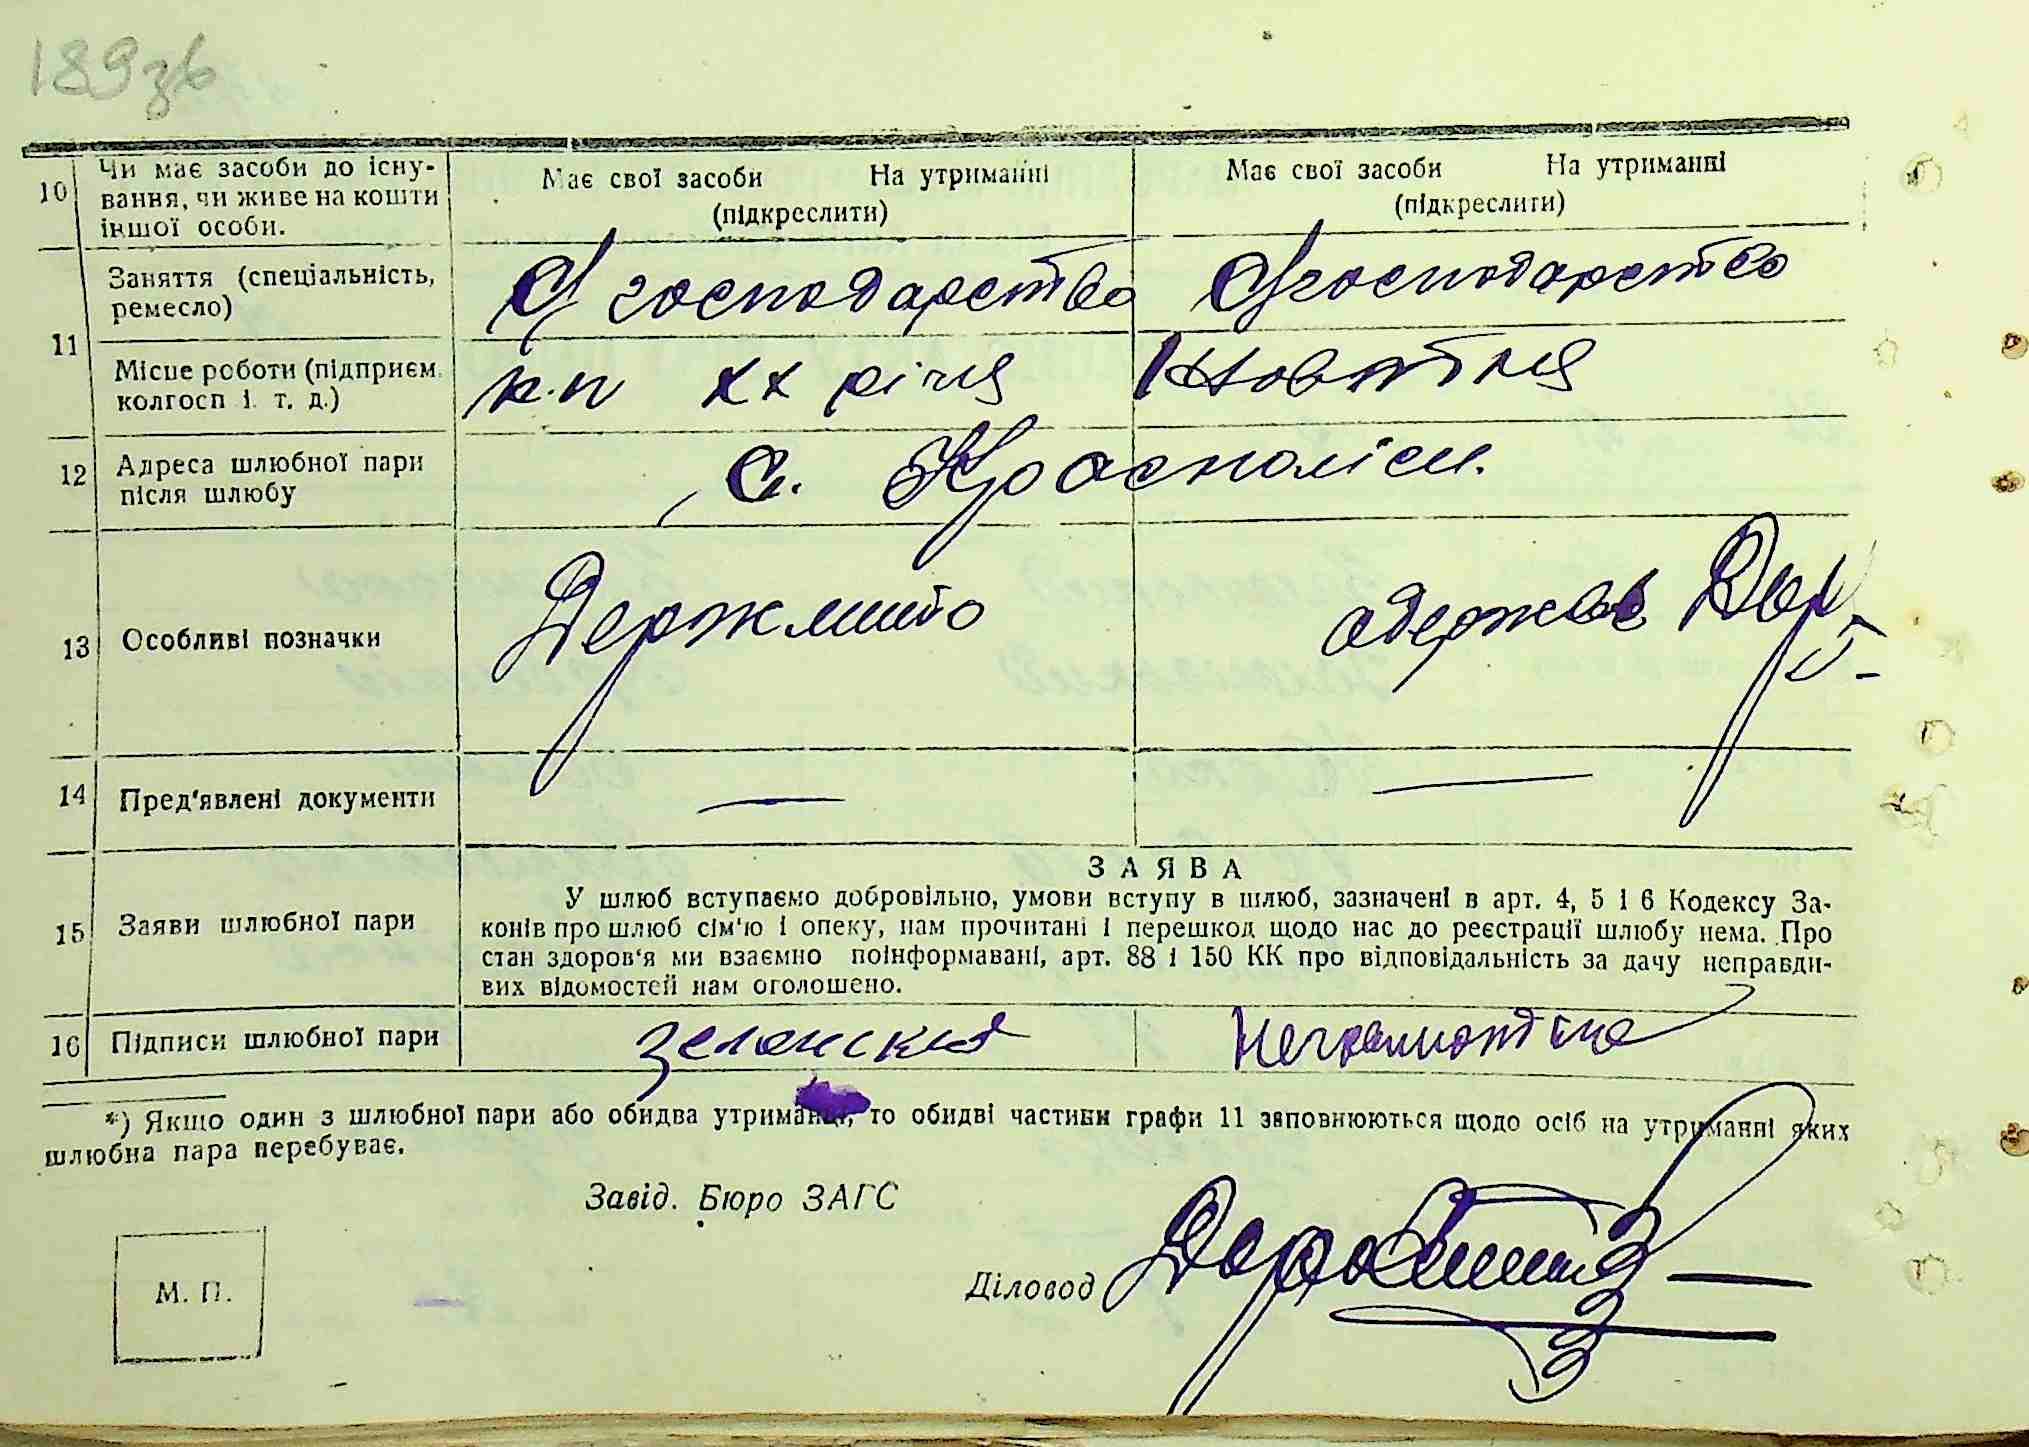 189 зв
10 Чи має засоби до існу-
вання, чи живе на кошти
іншої особи.
Має свої засоби На утриманні
(підкреслити)
Має свої засоби На утриманні
(підкреслити)
11 Заняття (спеціальність,
ремесло)
С/господарство С/господарство
Місце роботи (підприєм.
колгосп і. т. д.)
к.п ХХ річчя Жовтня
12 Адреса шлюбної пари
після шлюбу
С.
13 Особливі позначки
Держмито одержав
14 Пред'явлені документи — —
15 Заяви шлюбної пари
ЗАЯВА
У шлюб вступаємо добровільно, умови вступу в шлюб, зазначені в арт. 4, 5 і 6 Кодексу За-
конів про шлюб сім'ю і опеку, нам прочитані і перешкод щодо нас до реєстрації шлюбу нема. Про
стан здоров'я ми взаємно поінформавані, арт. 88 і 150 КК про відповідальність за дачу неправди-
вих відомостей нам оголошено.
16 Підписи шлюбної пари
Неграмотна
*) Якщо один з шлюбної пари або обидва утриманці, то обидві частини графи 11 заповнюються щодо осіб на утриманні яких
шлюбна пара перебуває.
Завід. Бюро ЗАГС
Діловод
М. П.